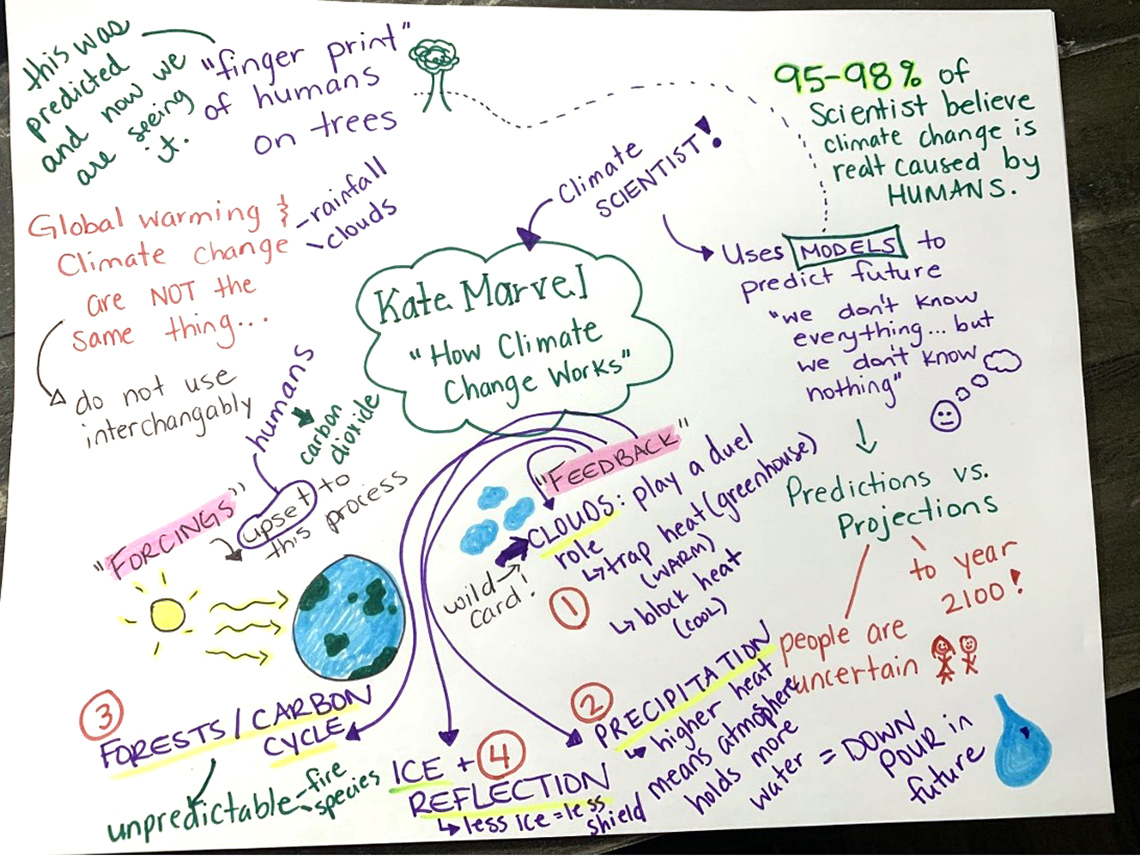 this was
predicted
and now we
are seeing
it.
"finger print"
of humans
on trees
Global warming &
Climate change
are NOT the
same thing...
-rainfall
clouds
do not use
interchangably
Climate
SCIENTIST!
Kate Marvel
"How Climate
Change Works"
95-98% of
Scientist believe
climate change is
real+ caused by
HUMANS.
Uses MODELS to
predict future
"we don't know
everything... but
we don't know
nothing"
Predictions vs.
Projections
to year
2100!
people are
uncertain
"FORCINGS"
humans
carbon
dioxide
upset to
this process
"FEEDBACK"
CLOUDS: play a duel
role
trap heat (greenhouse)
(WARM)
block heat
(COOL)
wild
card!
1
2
PRECIPITATION
higher heat
means atmosphere
holds more
water = DOWN
POUR in
future
3
FORESTS / CARBON
CYCLE
unpredictable -fire
species
4
ICE +
REFLECTION
less ice = less
shield